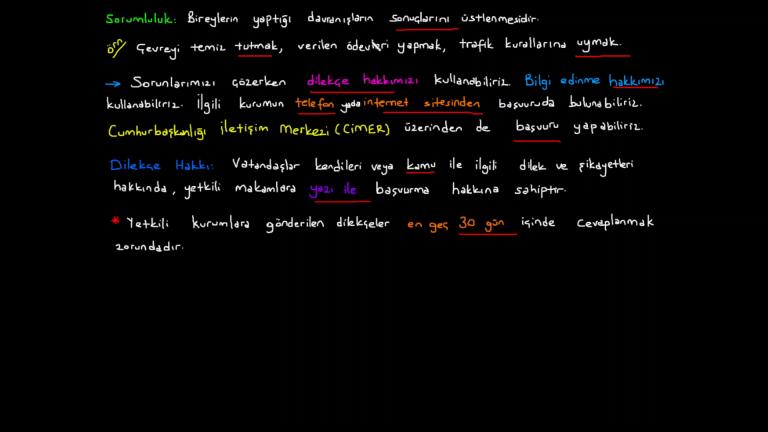 Sorumluluk: Bireylerin yaptığı davranışların sonuçlarını üstlenmesidir.
örn/ Çevreyi temiz tutmak, verilen ödevleri yapmak, trafik kurallarına uymak.
→ Sorunlarımızı çözerken dilekçe hakkımızı kullanabiliriz. Bilgi edinme hakkımızı
kullanabiliriz. İlgili kurumun telefon yada internet sitesinden başvuruda bulunabiliriz.
Cumhurbaşkanlığı İletişim Merkezi (CİMER) üzerinden de başvuru yapabiliriz.
Dilekçe Hakkı: Vatandaşlar kendileri veya kamu ile ilgili dilek ve şikayetleri
hakkında, yetkili makamlara yazı ile başvurma hakkına sahiptir.
* Yetkili kurumlara gönderilen dilekçeler en geç 30 gün içinde cevaplanmak
zorundadır.